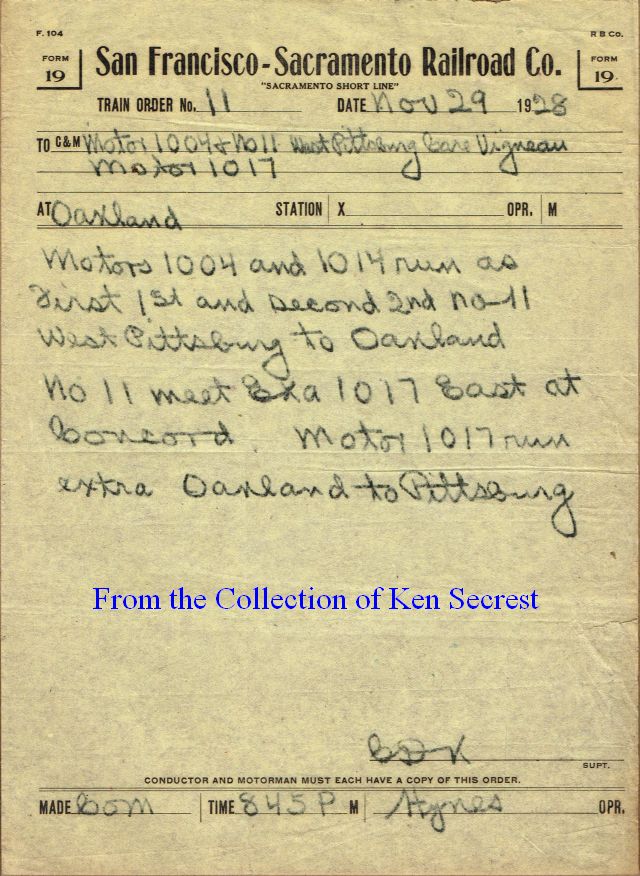 F. 104
R B Co.
FORM 19
San Francisco-Sacramento Railroad Co.
FORM 19
"SACRAMENTO SHORT LINE"
TRAIN ORDER No. 11 DATE Nov 29 1928
TO C&M Motor 1004 & No 11 West Pittsburg Care Vigneau
Motor 1017
AT Oakland STATION X OPR. M
Motors 1004 and 1014 run as
First 1st and second 2nd No 11
West Pittsburg to Oakland
No 11 meet Exa 1017 East at
Concord. Motor 1017 run
extra Oakland to Pittsburg
From the Collection of Ken Secrest
SUPT.
CONDUCTOR AND MOTORMAN MUST EACH HAVE A COPY OF THIS ORDER.
MADE Com TIME 845 P M Hynes OPR.